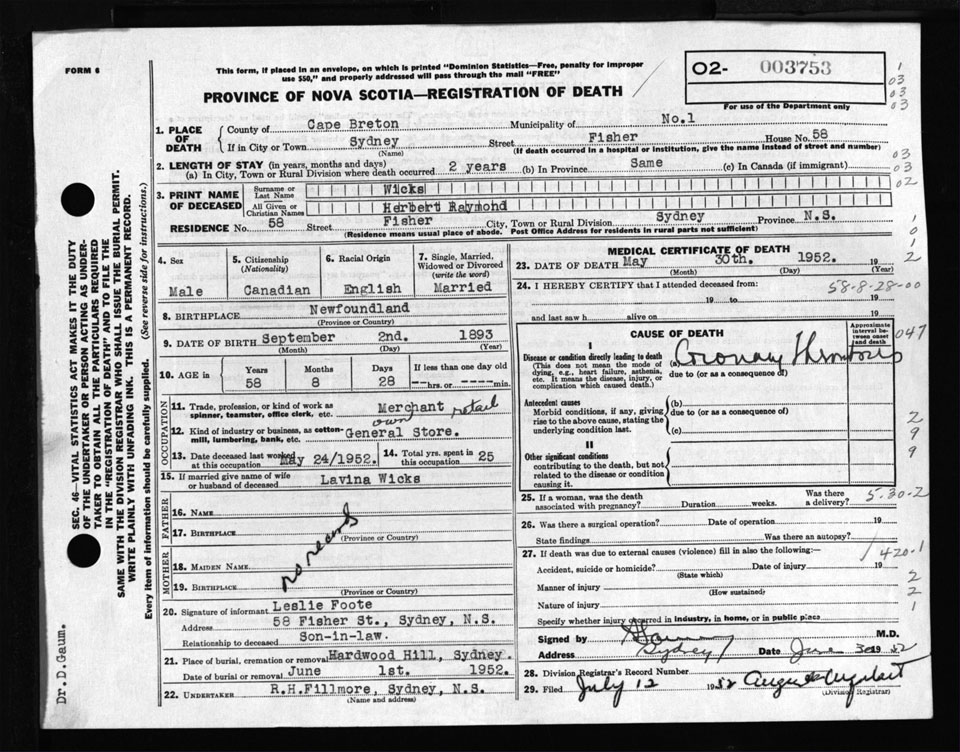 FORM 6
This form, if placed in an envelope, on which is printed "Dominion Statistics—Free, penalty for improper
use $50," and properly addressed will pass through the mail "FREE"
PROVINCE OF NOVA SCOTIA—REGISTRATION OF DEATH
O2- 003753
For use of the Department only
1
03
03
03
1. PLACE OF DEATH
County of Cape Breton Municipality of No.1
If in City or Town Sydney Street Fisher House No. 58
(Name) (If death occurred in a hospital or institution, give the name instead of street and number)
2. LENGTH OF STAY (in years, months and days)
(a) In City, Town or Rural Division where death occurred 2 years (b) In Province Same (c) In Canada (if immigrant)
03
03
02
3. PRINT NAME OF DECEASED
Surname or Last Name Wicks
All Given or Christian Names Herbert Raymond
RESIDENCE No. 58 Street Fisher City, Town or Rural Division Sydney Province N.S.
(Residence means usual place of abode. Post Office Address for residents in rural parts not sufficient)
1
0
1
2
4. Sex Male
5. Citizenship (Nationality) Canadian
6. Racial Origin English
7. Single, Married, Widowed or Divorced (write the word) Married
8. BIRTHPLACE Newfoundland
(Province or Country)
9. DATE OF BIRTH September 2nd. 1893
(Month) (Day) (Year)
10. AGE in Years 58 Months 8 Days 28 If less than one day old ---hrs. or ----min.
OCCUPATION
11. Trade, profession, or kind of work as
spinner, teamster, office clerk, etc. Merchant retail
own
12. Kind of industry or business, as cotton-
mill, lumbering, bank, etc. General Store.
13. Date deceased last worked
at this occupation May 24/1952. 14. Total yrs. spent in
this occupation 25
15. If married give name of wife
or husband of deceased Lavina Wicks
FATHER
16. NAME
17. BIRTHPLACE
(Province or Country)
no records
MOTHER
18. MAIDEN NAME
19. BIRTHPLACE
(Province or Country)
20. Signature of informant Leslie Foote
Address 58 Fisher St., Sydney, N.S.
Relationship to deceased Son-in-law.
21. Place of burial, cremation or removal Hardwood Hill, Sydney.
Date of burial or removal June 1st. 1952.
22. UNDERTAKER R.H.Fillmore, Sydney, N.S.
(Name and address)
MEDICAL CERTIFICATE OF DEATH
23. DATE OF DEATH May 30th. 1952. 19
(Month) (Day) (Year)
24. I HEREBY CERTIFY that I attended deceased from:
58-8-28-00
19 to 19
and last saw h alive on 19
CAUSE OF DEATH
Approximate interval between onset and death
047
I
Disease or condition directly leading to death
(This does not mean the mode of
dying, e.g., heart failure, asthenia,
etc. It means the disease, injury, or
complication which caused death.)
(a) Coronary Thrombosis
due to (or as a consequence of)
Antecedent causes
Morbid conditions, if any, giving
rise to the above cause, stating the
underlying condition last.
(b)
due to (or as a consequence of)
(c)
2
9
9
II
Other significant conditions
contributing to the death, but not
related to the disease or condition
causing it.
25. If a woman, was the death
associated with pregnancy? Duration weeks. Was there
a delivery?
5-30-2
26. Was there a surgical operation? Date of operation 19
State findings Was there an autopsy?
27. If death was due to external causes (violence) fill in also the following:—
420-1
Accident, suicide or homicide? Date of injury 19
(State which)
Manner of injury
(How sustained)
Nature of injury
2
2
1
Specify whether injury occurred in industry, in home, or in public place
Signed by M.D.
Address Sydney Date June 30 19 52
28. Division Registrar's Record Number
29. Filed July 12 1952
(Division Registrar)
SEC. 46—VITAL STATISTICS ACT MAKES IT THE DUTY
OF THE UNDERTAKER OR PERSON ACTING AS UNDER-
TAKER TO OBTAIN ALL THE PARTICULARS REQUIRED
IN THE "REGISTRATION OF DEATH" AND TO FILE THE
SAME WITH THE DIVISION REGISTRAR WHO SHALL ISSUE THE BURIAL PERMIT.
WRITE PLAINLY WITH UNFADING INK. THIS IS A PERMANENT RECORD.
Every item of information should be carefully supplied. (See reverse side for instructions.)
Dr.D.Gaum.